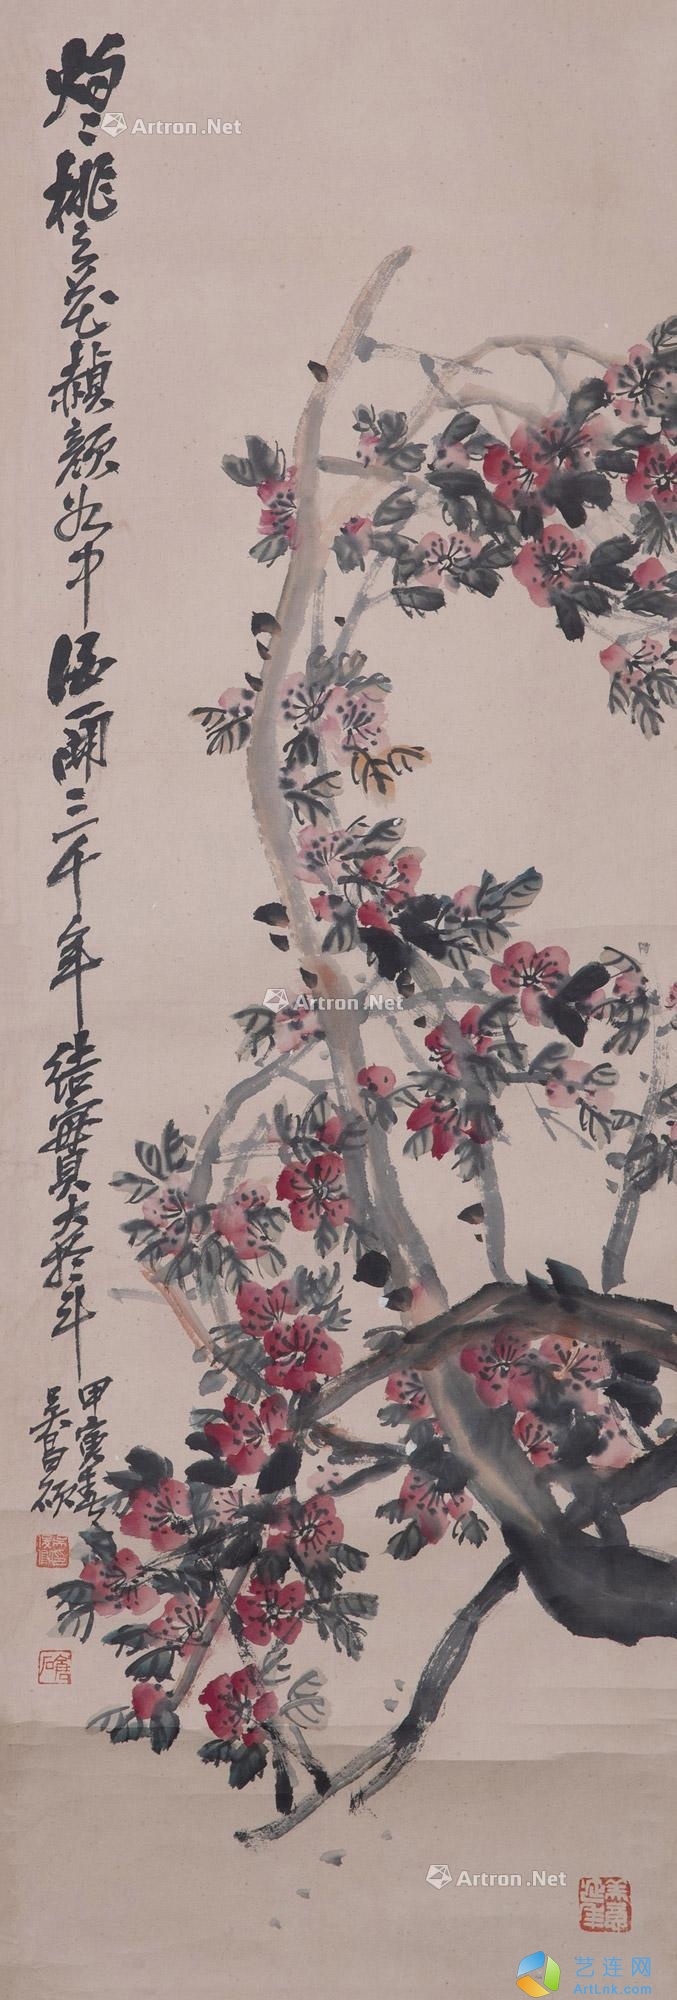 灼〻桃之花赬颜如中酒一开三千年结实大于斗
甲寅春
吴昌硕
Artron.Net
Artron.Net
Artron.Net
艺连网
ArtLnk.com